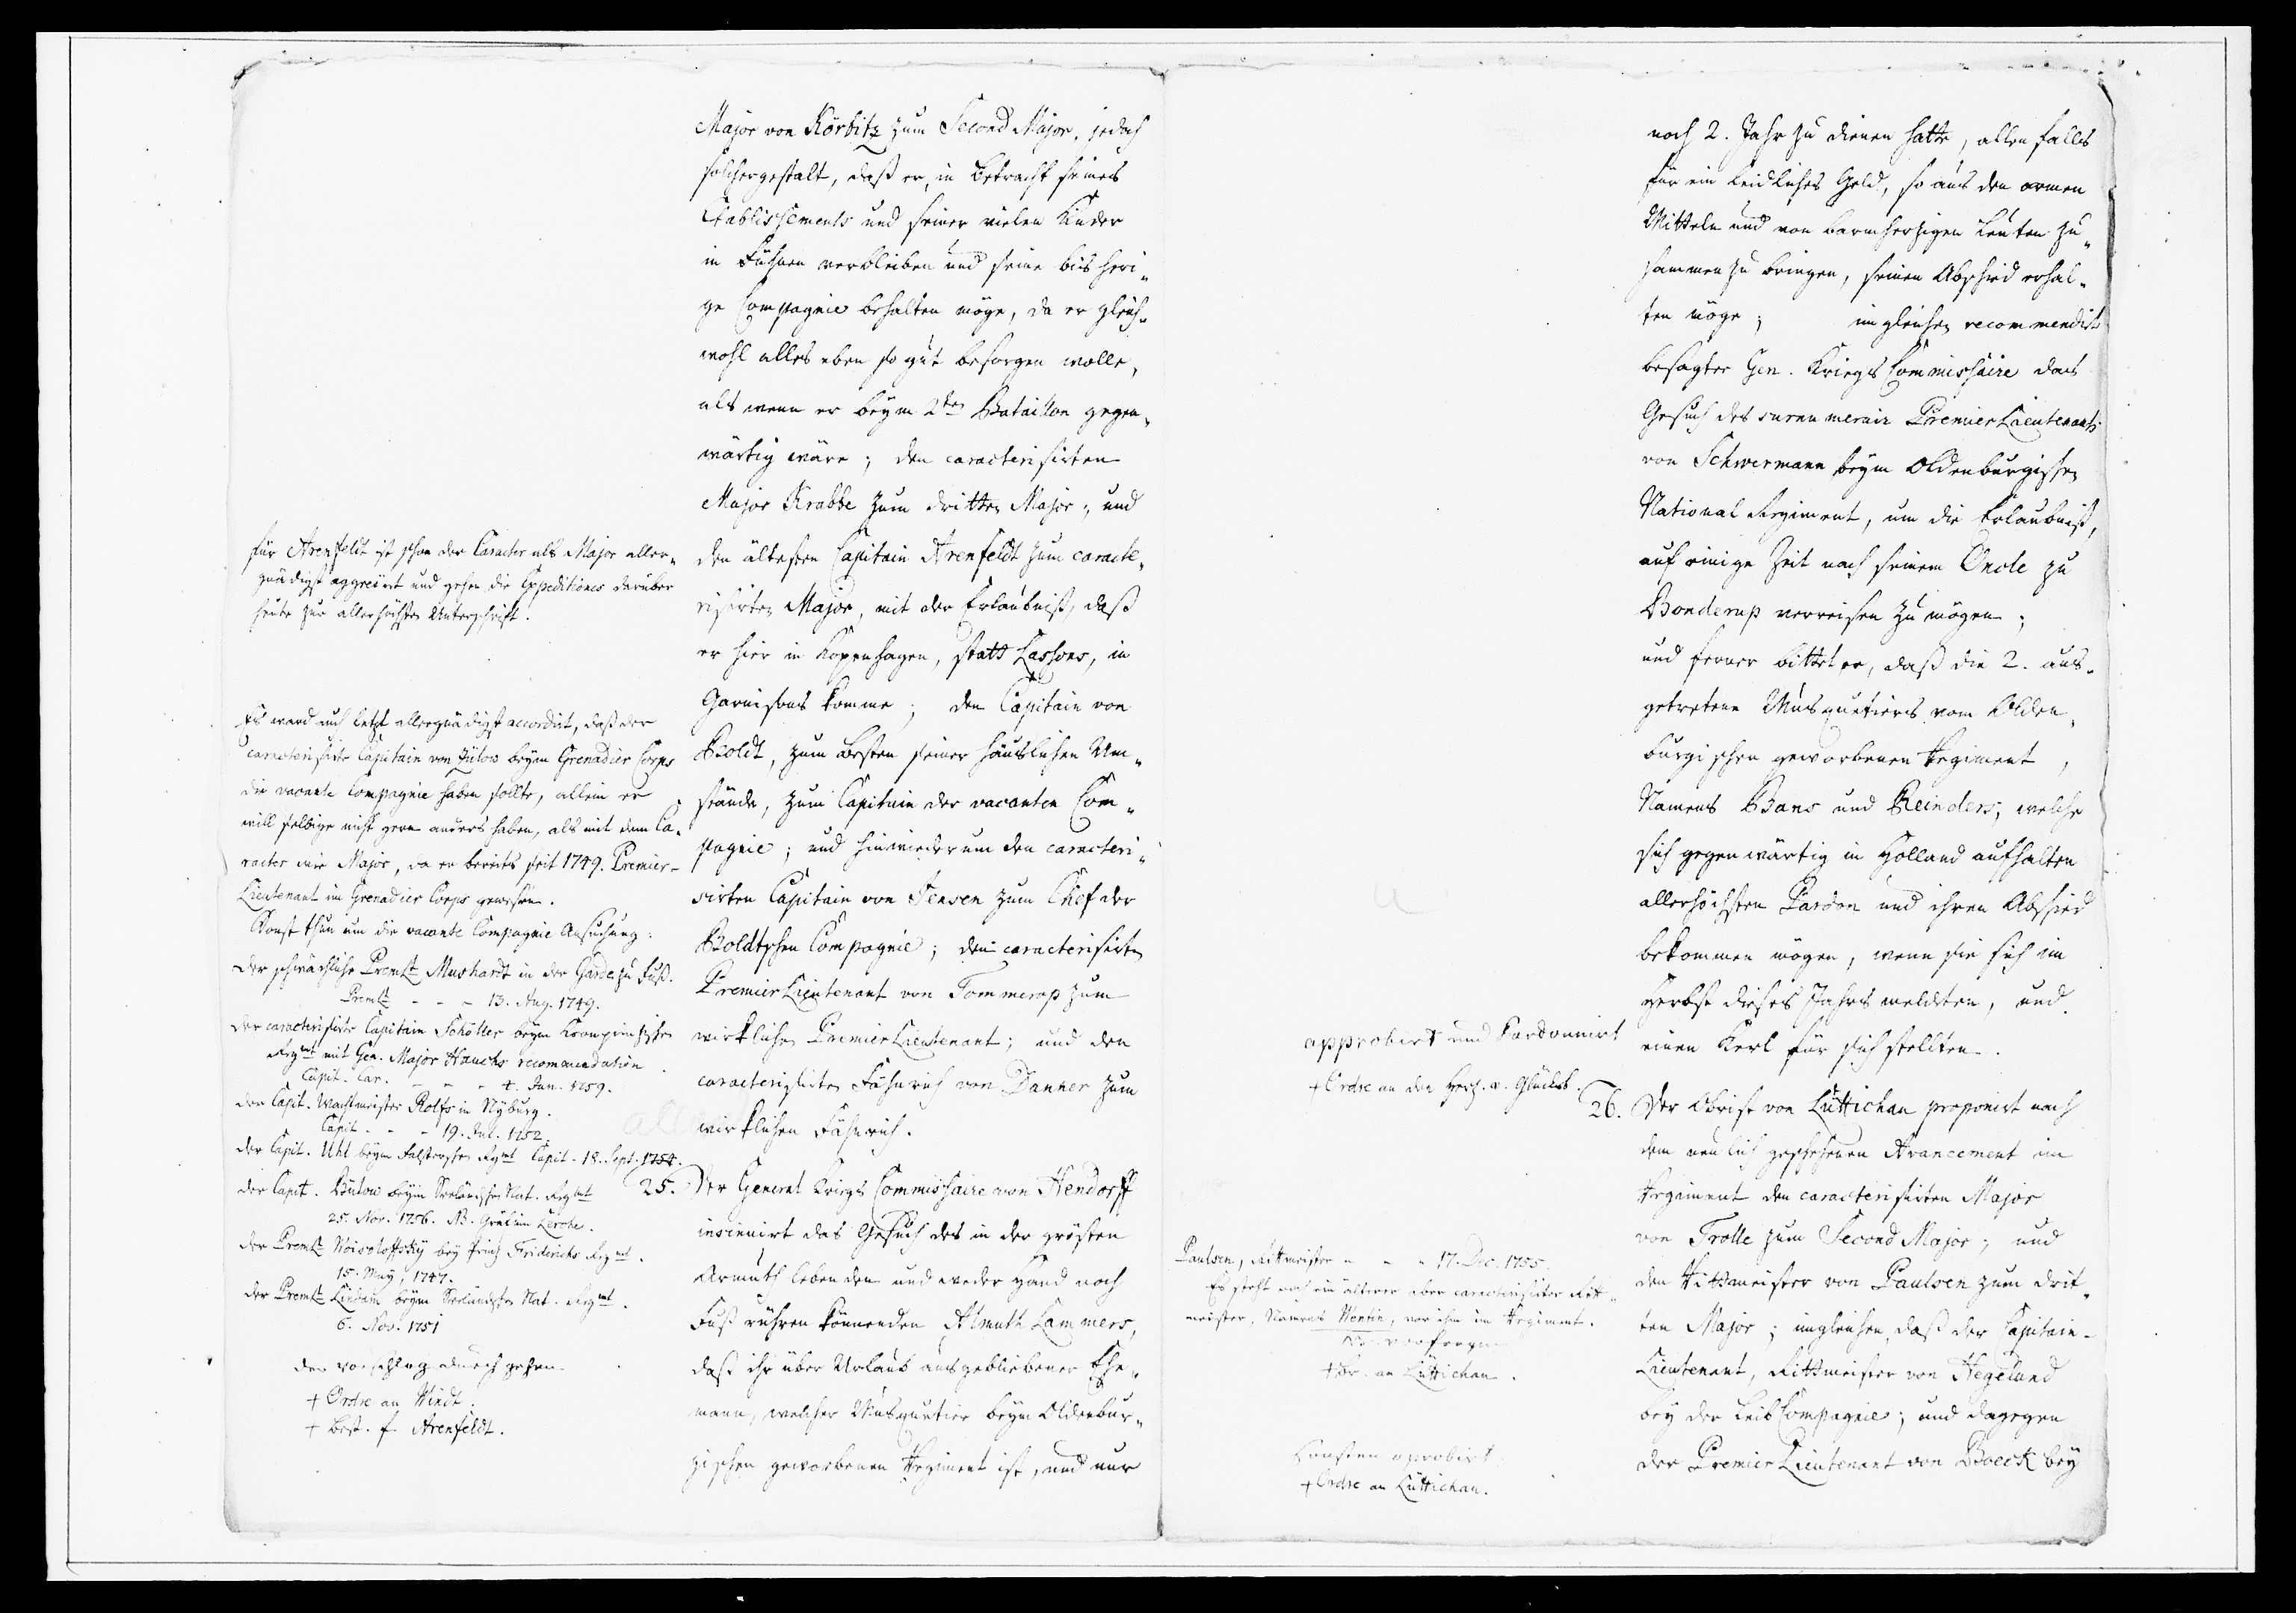 Major von Körbitz zum Second Major, jedoch
solchergestalt, daß er, in Betracht seines
Etablissements und seiner vielen Kinder
in Fühnen verbleiben und seine bisheri„
ge Compagnie behalten möge, da er gleich„
wohl alles eben so gut besorgen wolle,
als wenn er beym 2ten Bataillon gegen„
wärtig wäre; den caracterisirten
Major Krabbe zum dritten Major; und
den ältesten Capitain Arenfeldt zum caracte„
risirten Major, mit der Erlaubniß, daß
er hier in Koppenhagen, statt Lassons, in
Garnisons komme; den Capitain von
Boldt, zum Besten seiner häuslichen Um„
stände, zum Capitain der vacanten Com„
pagnie; und hinwiederum den caracteri„
sirten Capitain von Jensen zum Chef der
Boldtschen Compagnie; den caracterisirten
Premier Lieutenant von Tommerup zum
wirklichen Premier Lieutenant; und den
caracterisirten Fähnrich von Danner zum
wirklichen Fähnrich.
für Arenfeldt ist schon der Caracter als Major aller„
gnädigst aggreirt und gehen die Expeditiones darüber
heute zur allerhöchsten Unterschrift.
Es ward auch letzt allergnädigst accordirt, daß der
caracterisirte Capitain von Zülow beym Grenadier Corps
die vacante Compagnie haben sollte, allein er
will selbige nicht gern anders haben, als mit dem Ca„
racter wie Major, da er bereits seit 1749. Premier-
Lieutenant im Grenadier Corps gewesen.
Sonst thun um die vacante Compagnie Ansuchung:
der schwächliche Premlt Mushardt in der Garde zu Fuß.
Premlt - - - 13. Aug. 1749.
der caracterisirte Capitain Schöller beym Kronprinzschen
Regmt mit Gen. Major Hauchs recommendation.
Capit. Car. - - - 4. Jan. 1759.
der Capit. Wachtmeister Rolfs in Nyburg.
Capit. - - - 19. Jul. 1752.
der Capit. Uhl beym Falsterschen Regmt Capit. 18. Sept. 1754.
der Capit. Bülow beym Seeländschen Nat. Regmt
25. Nov. 1756. NB. Gräfin Lerche.
der Premlt Woisoloffsky bey Prinz Friderichs Regmt.
15. May, 1747.
der Premlt Lindam beym Seeländschen Nat. Regmt.
6. Nov. 1751
den vorschlag durch gehen
+ Ordre an Windt.
+ Best. f. Arenfeldt.
25. Der General Kriegs Commissaire von Hendorff
insinuirt das Gesuch des in der grösten
Armuth lebenden und weder Hand noch
Fuß rühren könnenden Almuth Lammers,
daß ihr über Urlaub ausgebliebener Ehe„
mann, welcher Musquetier beym Oldenbur„
gischen geworbenen Regiment ist, und nur
noch 2. Jahr zu dienen hatte, allenfalls
für ein leidliches Geld, so aus den armen
Mitteln und von barmherzigen Leuten zu„
sammen zu bringen, seinen Abschied erhal„
ten möge; imgleichen recommendirt
besagter Gen. Kriegs Commissaire das
Gesuch des surnumerair Premier Lieutenants
von Schwermann beym Oldenburgischen
National Regiment, um die Erlaubniß,
auf einige Zeit nach seinem Oncle zu
Bonderup verreisen zu mögen;
und ferner bittet er, daß die 2. aus„
getretene Musquetiers vom Olden„
burgischen geworbenen Regiment,
Namens Bans und Reinders, welche
sich gegenwärtig in Holland aufhalten
allerhöchsten Pardon und ihren Abschied
bekommen mögen, wenn sie sich im
Herbst dieses Jahrs meldeten, und
einen Kerl für sich stellten.
approbirt und Pardonnirt
+ Ordre an den Herz. v. Glücksb.
26. Der Obrist von Lüttichau proponirt nach
dem neulich geschehenen Avancement im
Regiment den caracterisirten Major
von Trolle zum Second Major; und
den Rittmeister von Paulsen zum drit„
ten Major; imgleichen, daß der Capitain-
Lieutenant, Rittmeister von Hegeland
bey der Leib Compagnie; und dagegen
der Premier Lieutenant von Boeck bey
Paulsen, Rittmeister - - - 17. Dec. 1755.
Es steht noch ein älterer aber caracterisirter Ritt„
meister, Namens Wentin, vor ihm im Regiment.
+ Or. an Lüttichau.
Konsten aprobirt
+ Ordre an Lüttichau.